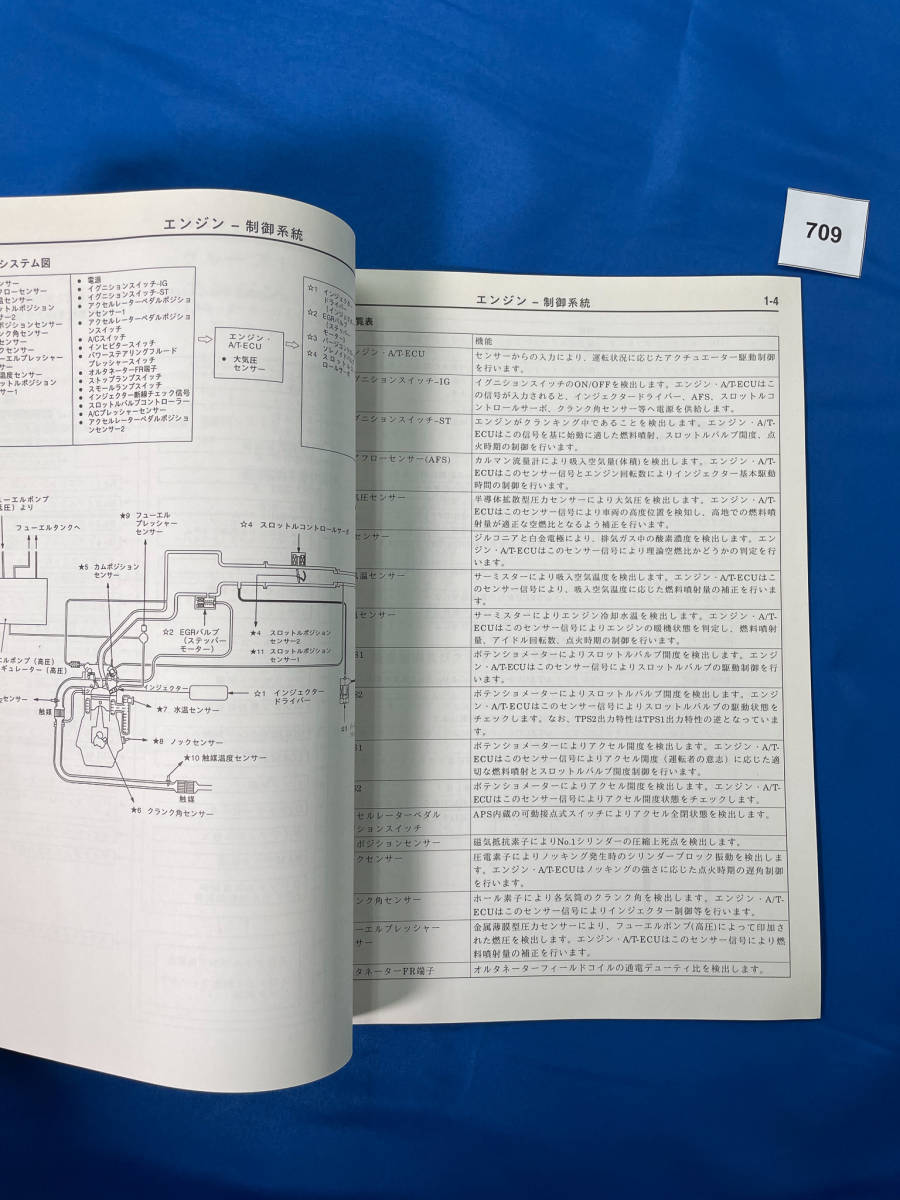 709
エンジン − 制御系統
システム図
ンサー
フローセンサー
温センサー
ットルポジション
サー2
ポジションセンサー
ンク角センサー
センサー
クセンサー
ーエルプレッシャー
サー
温度センサー
ットルポジション
サー1
● 電源
● イグニションスイッチ-IG
● イグニションスイッチ-ST
● アクセルレーターペダルポジショ
ンセンサー1
● アクセルレーターペダルポジショ
ンスイッチ
● A/Cスイッチ
● インヒビタースイッチ
● パワーステアリングフルード
プレッシャースイッチ
● オルタネーターFR端子
● ストップランプスイッチ
● スモールランプスイッチ
● インジェクター断線チェック信号
● スロットルバルブコントローラー
● A/Cプレッシャーセンサー
● アクセルレーターペダルポジショ
ンセンサー2
エンジン・
A/T-ECU
● 大気圧
センサー
☆1 インジェクター
ドライバー
☆2 EGRバルブ
(ステッパー
モーター)
☆3
☆4 スロットル
ューエルポンプ
低圧）より
フューエルタンクへ
★9 フューエル
プレッシャー
センサー
☆4 スロットルコントロールサーボ
★5 カムポジション
センサー
☆2 EGRバルブ
（ステッパー
モーター）
★4 スロットルポジション
センサー2
★11 スロットルポジション
センサー1
エルポンプ（高圧）
ギュレーター（高圧）
センサー
触媒
インジェクター
☆1 インジェクター
ドライバー
★7 水温センサー
★8 ノックセンサー
★10 触媒温度センサー
触媒
★6 クランク角センサー
エンジン − 制御系統
1-4
覧表
機能
ンジン・A/T-ECU
センサーからの入力により、運転状況に応じたアクチュエーター駆動制御
を行います。
グニションスイッチ-IG
イグニションスイッチのON/OFFを検出します。エンジン・A/T-ECUはこ
の信号が入力されると、インジェクタードライバー、AFS、スロットルコ
ントロールサーボ、クランク角センサー等へ電源を供給します。
グニションスイッチ-ST
エンジンがクランキング中であることを検出します。エンジン・A/T-
ECUはこの信号を基に始動に適した燃料噴射、スロットルバルブ開度、点
火時期の制御を行います。
フローセンサー(AFS)
カルマン流量計により吸入空気量(体積)を検出します。エンジン・A/T-
ECUはこのセンサー信号とエンジン回転数によりインジェクター基本駆動
時間の制御を行います。
気圧センサー
半導体拡散型圧力センサーにより大気圧を検出します。エンジン・A/T-
ECUはこのセンサー信号により車両の高度位置を検知し、高地での燃料噴
射量が適正な空燃比となるよう補正を行います。
センサー
ジルコニアと白金電極により、排気ガス中の酸素濃度を検出します。エン
ジン・A/T-ECUはこのセンサー信号により理論空燃比かどうかの判定を行
います。
気温センサー
サーミスターにより吸入空気温度を検出します。エンジン・A/T-ECUはこ
のセンサー信号により、吸入空気温度に応じた燃料噴射量の補正を行いま
す。
センサー
サーミスターによりエンジン冷却水温を検出します。エンジン・A/T-
ECUはこのセンサー信号によりエンジンの暖機状態を判定し、燃料噴射
量、アイドル回転数、点火時期の制御を行います。
S1
ポテンショメーターによりスロットルバルブ開度を検出します。エンジ
ン・A/T-ECUはこのセンサー信号によりスロットルバルブの駆動制御を行
います。
S2
ポテンショメーターによりスロットルバルブ開度を検出します。エンジ
ン・A/T-ECUはこのセンサー信号によりスロットルバルブの駆動状態を
チェックします。なお、TPS2出力特性はTPS1出力特性の逆となっていま
す。
S1
ポテンショメーターによりアクセル開度を検出します。エンジン・A/T-
ECUはこのセンサー信号によりアクセル開度（運転者の意志）に応じた適
切な燃料噴射とスロットルバルブ開度制御を行います。
S2
ポテンショメーターによりアクセル開度を検出します。エンジン・A/T-
ECUはこのセンサー信号によりアクセル開度状態をチェックします。
セルレーターペダル
ションスイッチ
APS内蔵の可動接点式スイッチによりアクセル全閉状態を検出します。
ポジションセンサー
磁気抵抗素子によりNo.1シリンダーの圧縮上死点を検出します。
クセンサー
圧電素子によりノッキング発生時のシリンダーブロック振動を検出しま
す。エンジン・A/T-ECUはノッキングの強さに応じた点火時期の遅角制御
を行います。
ンク角センサー
ホール素子により各気筒のクランク角を検出します。エンジン・A/T-
ECUはこのセンサー信号によりインジェクター制御等を行います。
ーエルプレッシャー
サー
金属薄膜型圧力センサーにより、フューエルポンプ(高圧)によって印加さ
れた燃圧を検出します。エンジン・A/T-ECUはこのセンサー信号により燃
料噴射量の補正を行います。
タネーターFR端子
オルタネーターフィールドコイルの通電デューティ比を検出します。